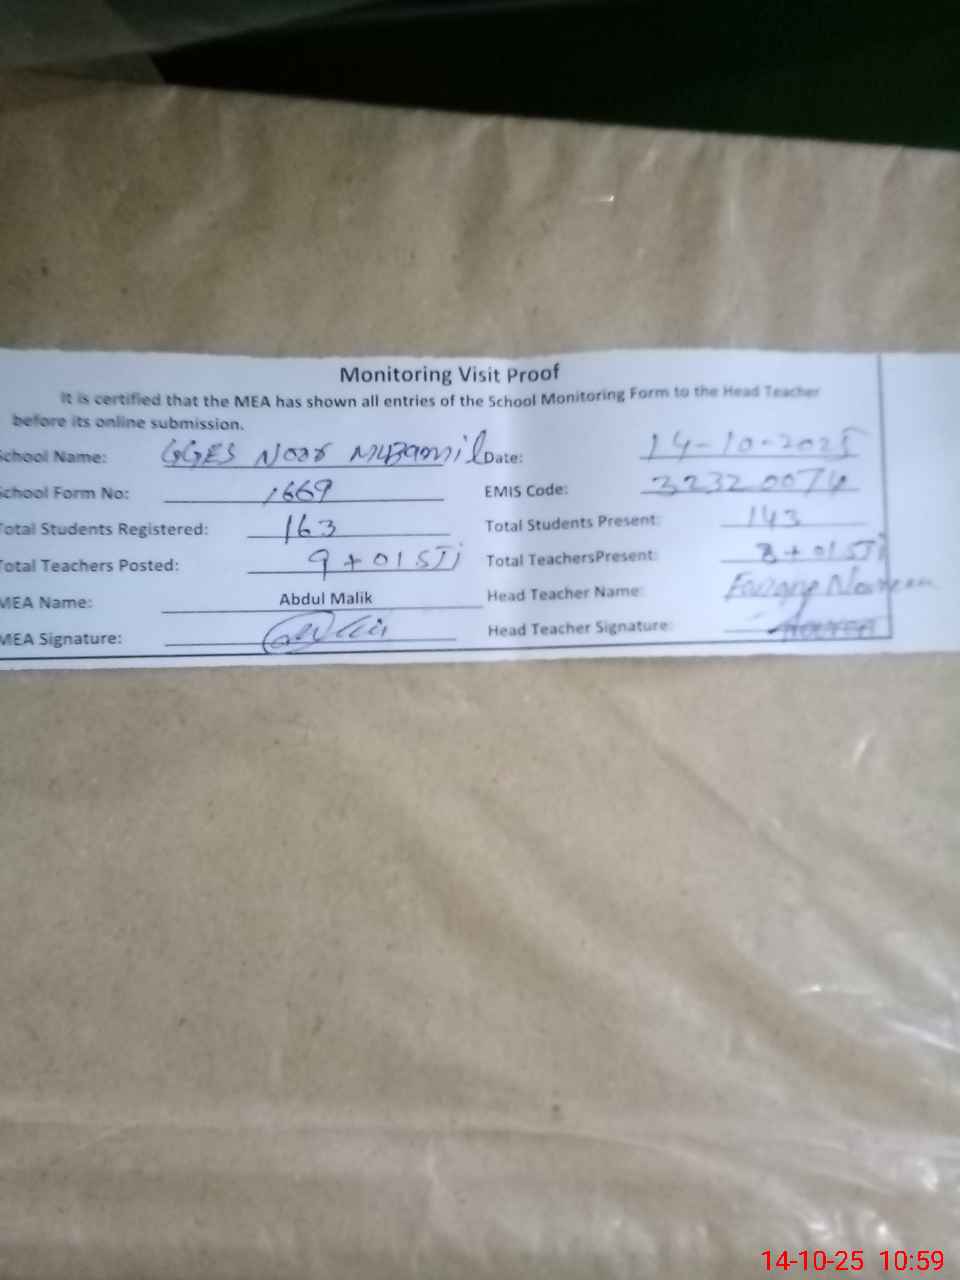 Monitoring Visit Proof
It is certified that the MEA has shown all entries of the School Monitoring Form to the Head Teacher
before its online submission.
School Name: GGES Noor Muzamil Date: 14-10-2025
School Form No: 1669 EMIS Code: 32320074
Total Students Registered: 163 Total Students Present: 143
Total Teachers Posted: 9 + 01 STI Total TeachersPresent: 8 + 01 STI
MEA Name: Abdul Malik Head Teacher Name:
MEA Signature: Head Teacher Signature:
14-10-25 10:59